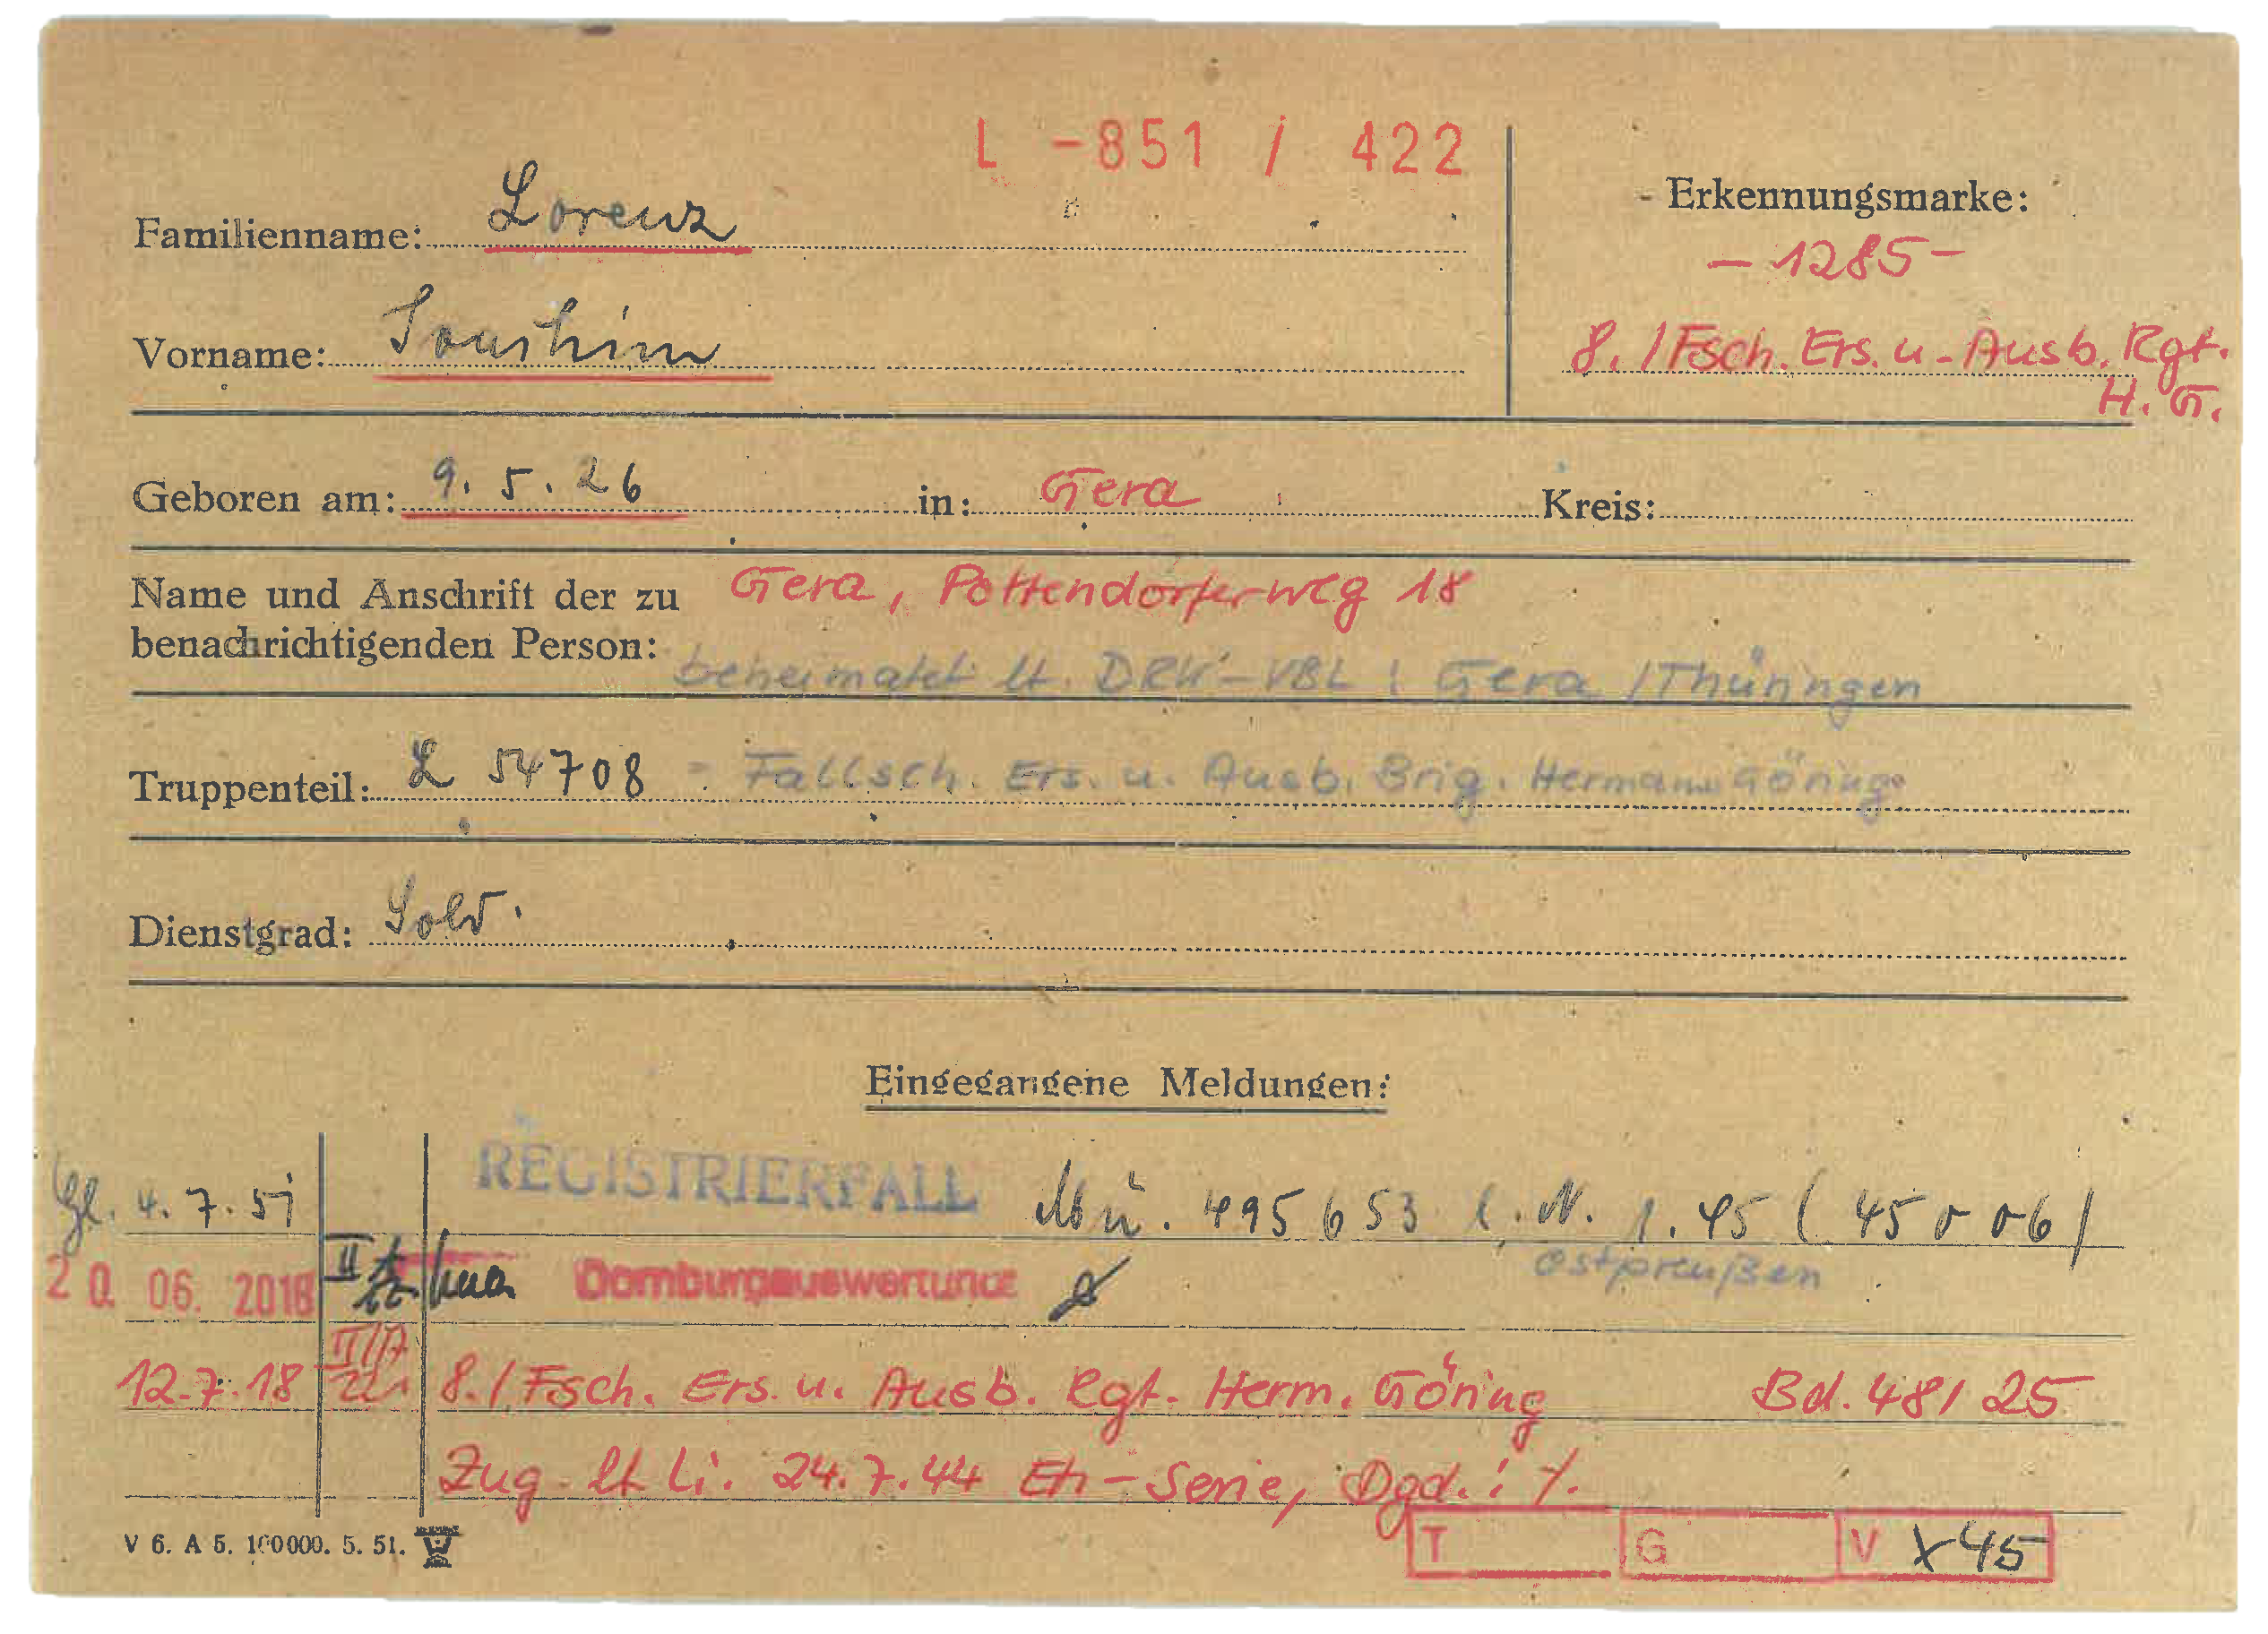 L -851 / 422
Familienname: Lorenz
Erkennungsmarke:
- 1285 -
Vorname: Joachim
8. / Fsch. Ers. u. Ausb. Rgt.
H. G.
Geboren am: 9. 5. 26 in: Gera Kreis:
Name und Anschrift der zu Gera, Pottendorferweg 18
benachrichtigenden Person: beheimatet lt. DRK-VBL | Gera /Thüringen
Truppenteil: L 54708 - Fallsch. Ers. u. Ausb. Brig. Hermann Göring
Dienstgrad: Sold.
Eingegangene Meldungen:
4. 7. 51 REGISTRIERFALL 495 653 1. 45
Ostpreußen
20. 06. 2018 II Domburgauswertung
12.7.18 8. / Fsch. Ers. u. Ausb. Rgt. Herm. Göring Bd. 48 / 25
Zug. lt Li. 24.7.44 Eh - Serie, Dgd.: ٪.
V 6. A 5. 100000. 5. 51.
T G V X 45